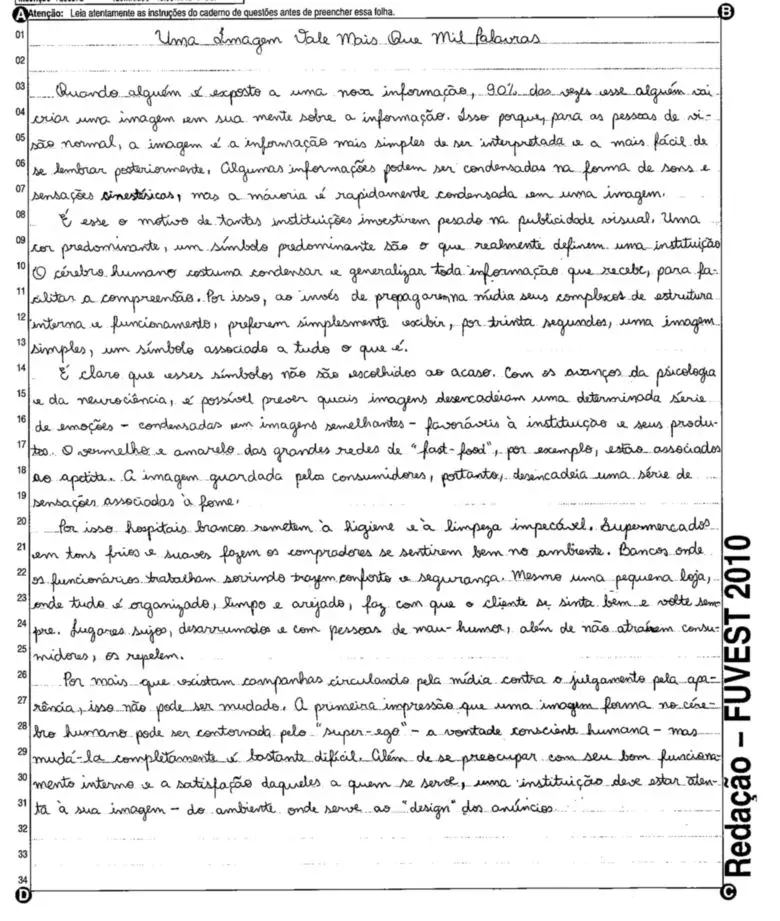 Atenção: Leia atentamente as instruções do caderno de questões antes de preencher essa folha.
A
B
01 Uma Imagem Vale Mais Que Mil Palavras
02
03 Quando alguém é exposto a uma nova informação, 90% das vezes esse alguém vai
04 criar uma imagem em sua mente sobre a informação. Isso porque, para as pessoas de vi-
05 são normal, a imagem é a informação mais simples de ser interpretada e a mais fácil de
06 se lembrar posteriormente. Algumas informações podem ser condensadas na forma de sons e
07 sensações sinestésicas, mas a maioria é rapidamente condensada em uma imagem.
08 É esse o motivo de tantas instituições investirem pesado na publicidade visual. Uma
09 cor predominante, um símbolo predominante são o que realmente definem uma instituição
10 O cérebro humano costuma condensar e generalizar toda informação que recebe, para fa-
11 cilitar a compreensão. Por isso, ao invés de propagarem na mídia seus complexos de estrutura
12 interna e funcionamento, preferem simplesmente exibir, por trinta segundos, uma imagem
13 simples, um símbolo associado a tudo o que é.
14 É claro que esses símbolos não são escolhidos ao acaso. Com os avanços da psicologia
15 e da neurociência, é possível prever quais imagens desencadeiam uma determinada série
16 de emoções - condensadas em imagens semelhantes - favoráveis à instituição e seus produ-
17 tos. O vermelho e amarelo das grandes redes de "fast-food", por exemplo, estão associados
18 ao apetite. A imagem guardada pelos consumidores, portanto, desencadeia uma série de
19 sensações associadas à fome.
20 Por isso hospitais brancos remetem à higiene e à limpeza impecável. Supermercados
21 em tons frios e suaves fazem os compradores se sentirem bem no ambiente. Bancos onde
22 os funcionários trabalham sorrindo trazem conforto e segurança. Mesmo uma pequena loja,
23 onde tudo é organizado, limpo e arejado, faz com que o cliente se sinta bem e volte sem-
24 pre. Lugares sujos, desarrumados e com pessoas de mau-humor, além de não atraírem consu-
25 midores, os repelem.
26 Por mais que existam campanhas circulando pela mídia contra o julgamento pela apa-
27 rência, isso não pode ser mudado. A primeira impressão que uma imagem forma no cére-
28 bro humano pode ser contornada pelo "super-ego" - a vontade consciente humana - mas
29 mudá-la completamente é bastante difícil. Além de se preocupar com seu bom funciona-
30 mento interno e a satisfação daqueles a quem se serve, uma instituição deve estar aten-
31 ta à sua imagem - do ambiente onde serve ao "design" dos anúncios
32
33
34
D
C
Redação – FUVEST 2010